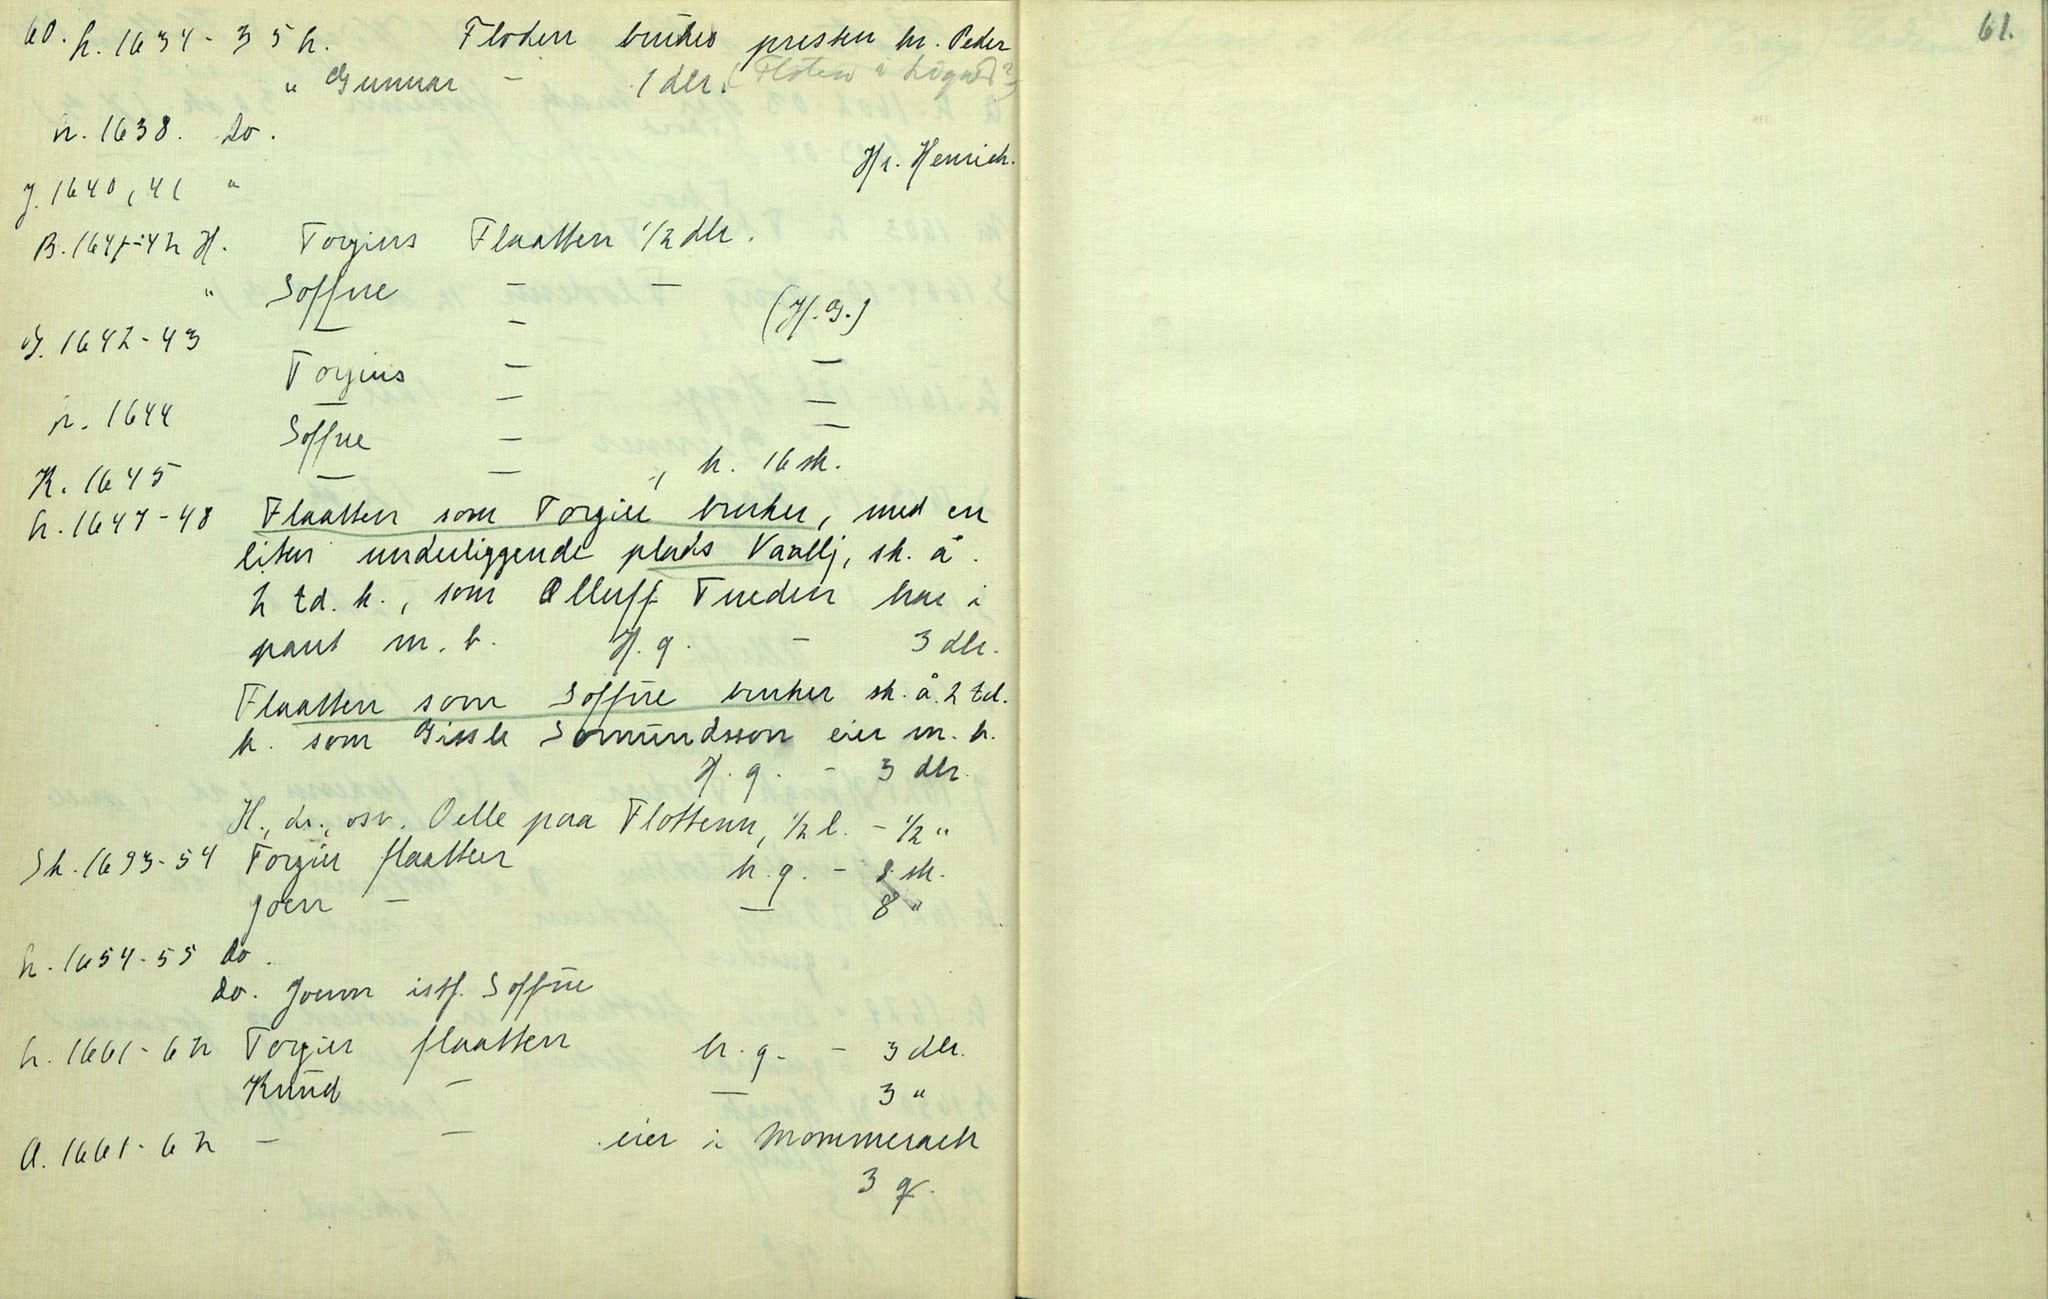 60. h. 1634-35 h. Floden bruker presten hr. Peder
" Gunnar - 1 dlr. (Floten i Lognd?)
h. 1638. do.
Hr. Henrich.
J. 1640, 41 "
B. 1641-42 H. Torgius Flaatten 1/2 dlr.
" Soffue — —
G. 1642-43 — — (H. G.)
Torgius — —
h. 1644 — — —
Soffue — —
K. 1645 — — , h. 16 sk.
h. 1647-48 Flaatten som Torgiu bruker, med en
liten underliggende plads Vaallj, sk. å.
2 td. k., som Olluff Tueden har i
pant m. b. H. g. - 3 dlr.
Flaatten som Soffue bruker sk. å. 2 td.
k. som Gissle Somundsson eier m. b.
H. g. - 3 dlr.
H., dr., osv. Oelle paa Flottenn, 1/2 l. - 1/2 "
Sk. 1653-54 Torgiu flaatten h. g. - 8 sk.
Joen — — 8 "
h. 1654-55 do.
do. Joenn istf. Soffue
h. 1661-62 Torgiu flaatten h. g. - 3 dlr.
Knud — — 3 "
A. 1661-62 — — eier i Mommerach
3 q.
61.